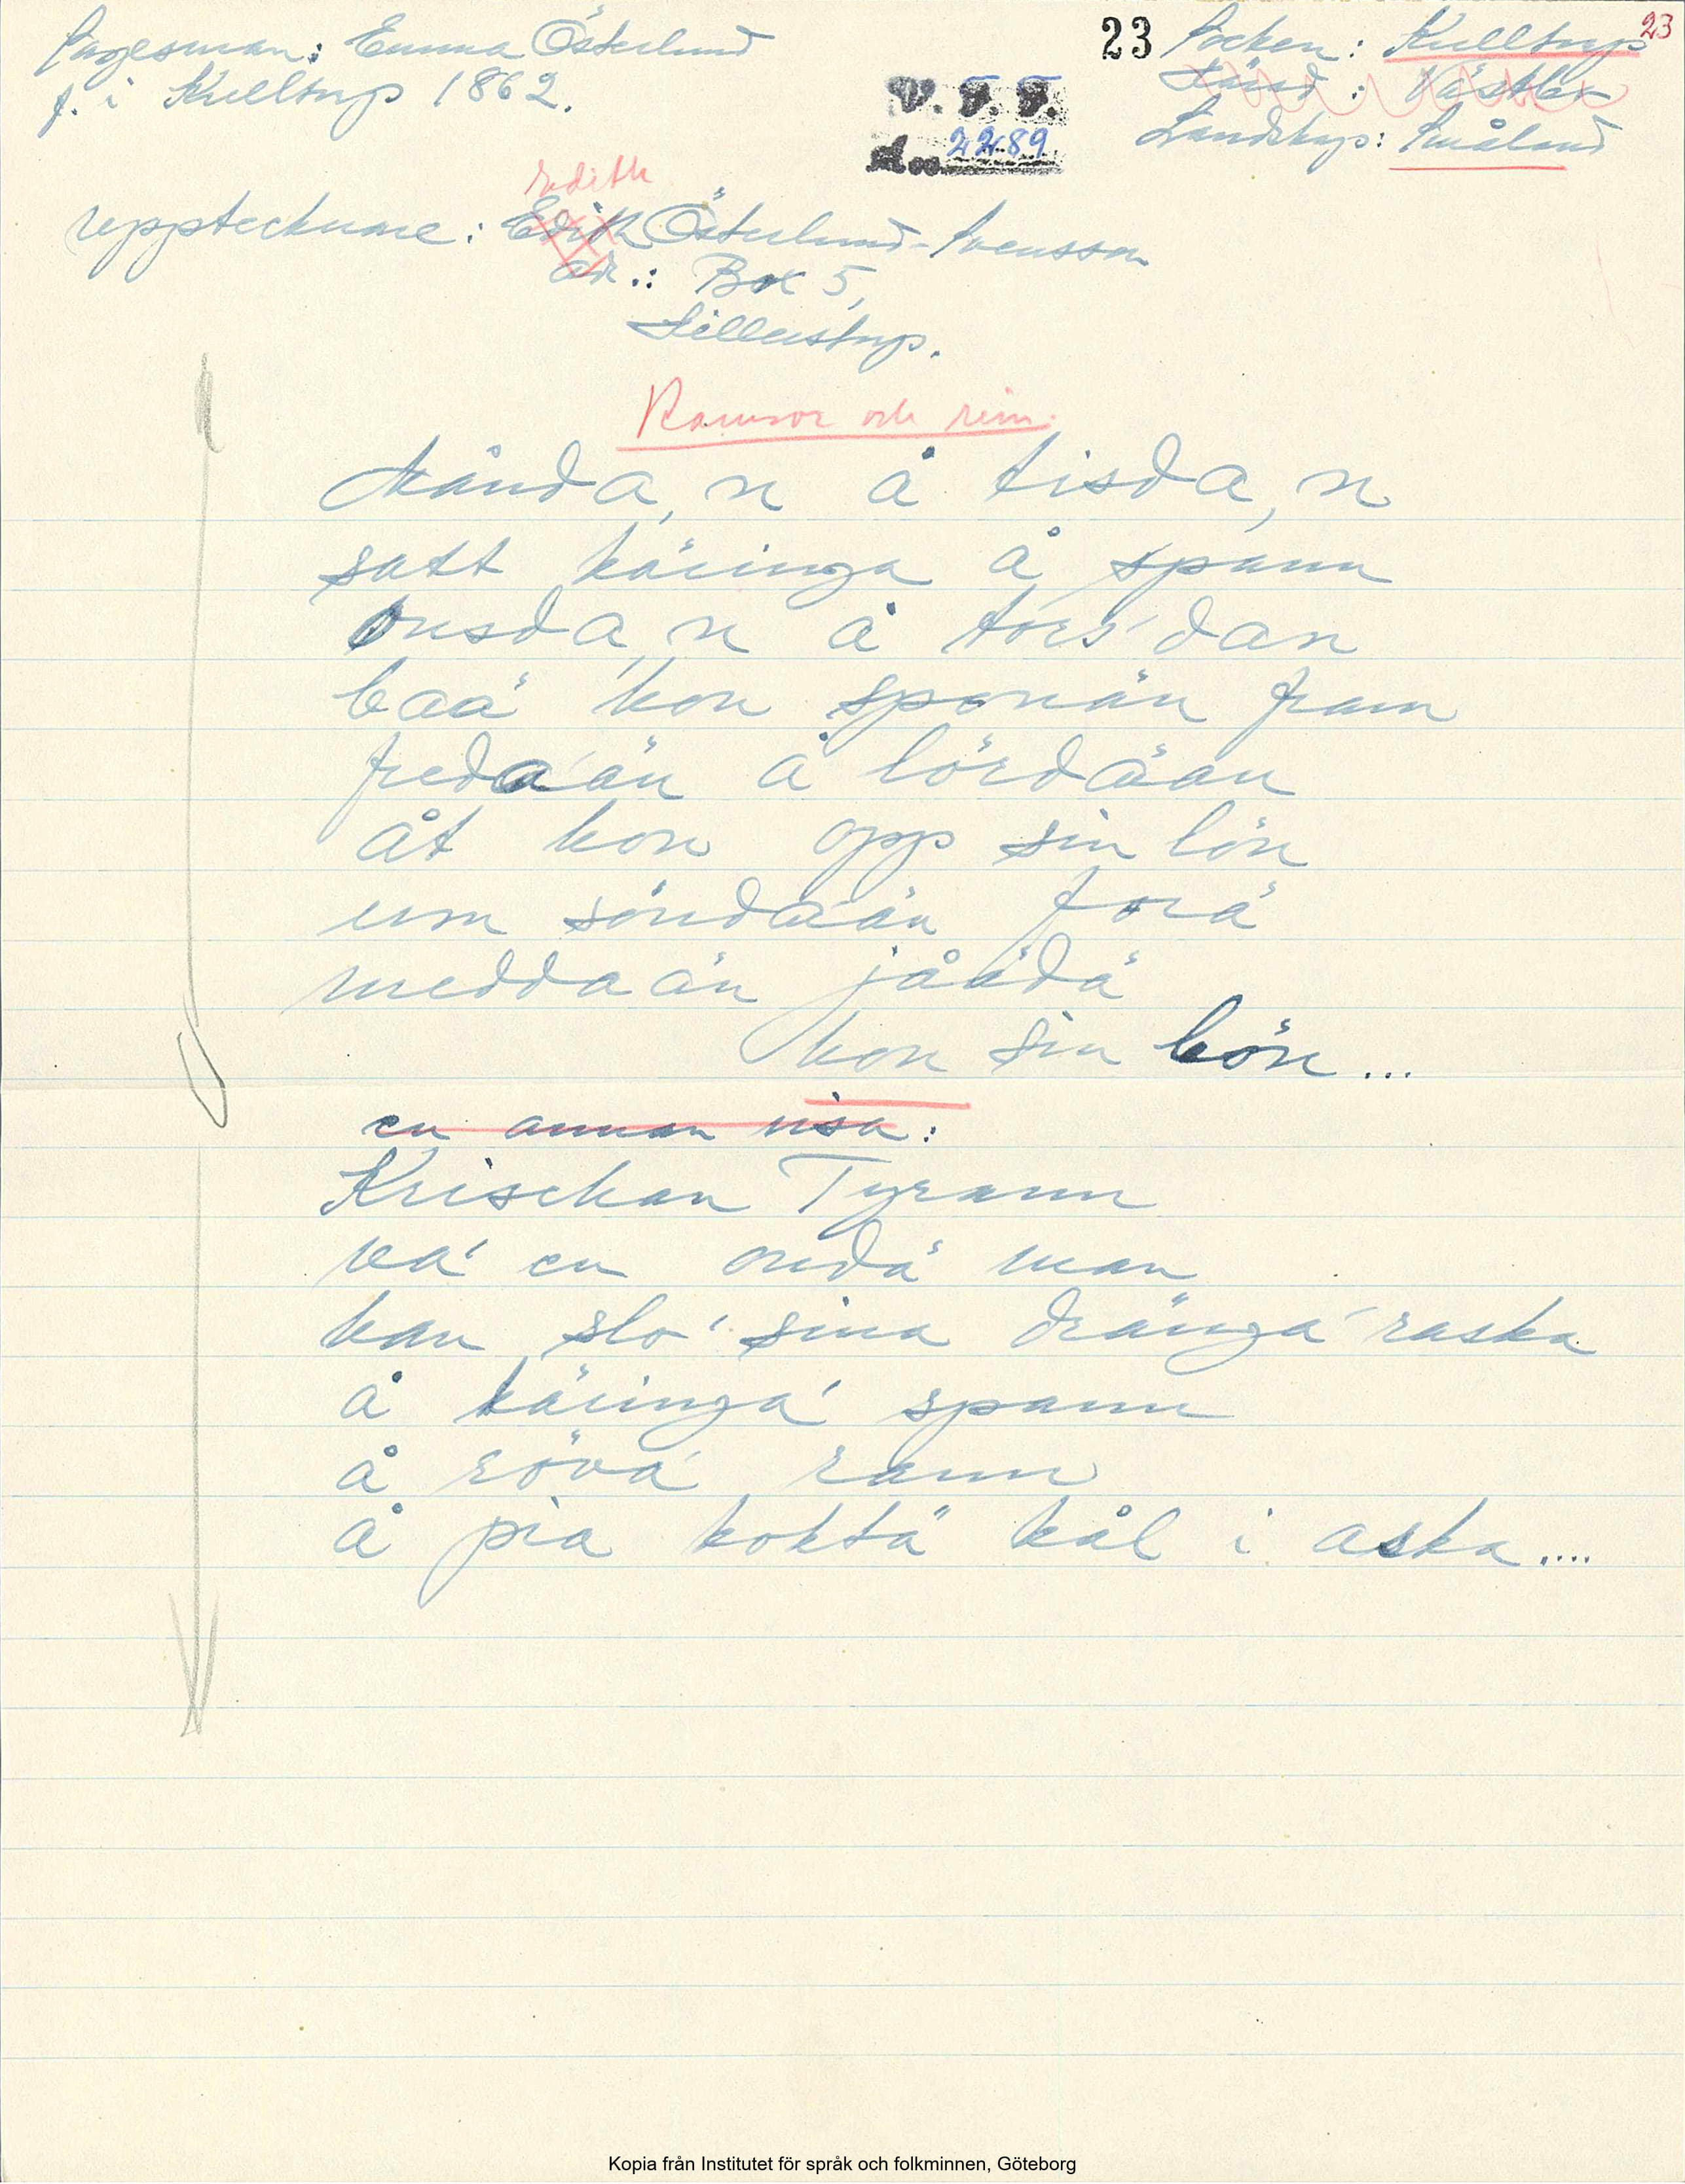 Sagesman: Emma Österlund
f. i Kulltorp 1862.
23
Socken: Kulltorp 23
Härad: Västbo
Landskap: Småland
V. F. F.
2289
Edith
upptecknare: Edith Österlund-Svensson
adr.: Box 5,
Hillerstorp.
Ramsor och rim.
Månda,n å tisda,n
satt käringa å spann
Onsda,n å tors'dan
baä' hon sponän fram
freda'än å lördäan
åt hon opp sin lön
um söndaän förä
meddaän jåädä
hon sin bön...
en annan visa:
Krischan Tyrann
va' en ondä man
han slo' sina dränga' raska
å käringa' spann
å röva' rann
å pia koktä kål i aska....
Kopia från Institutet för språk och folkminnen, Göteborg